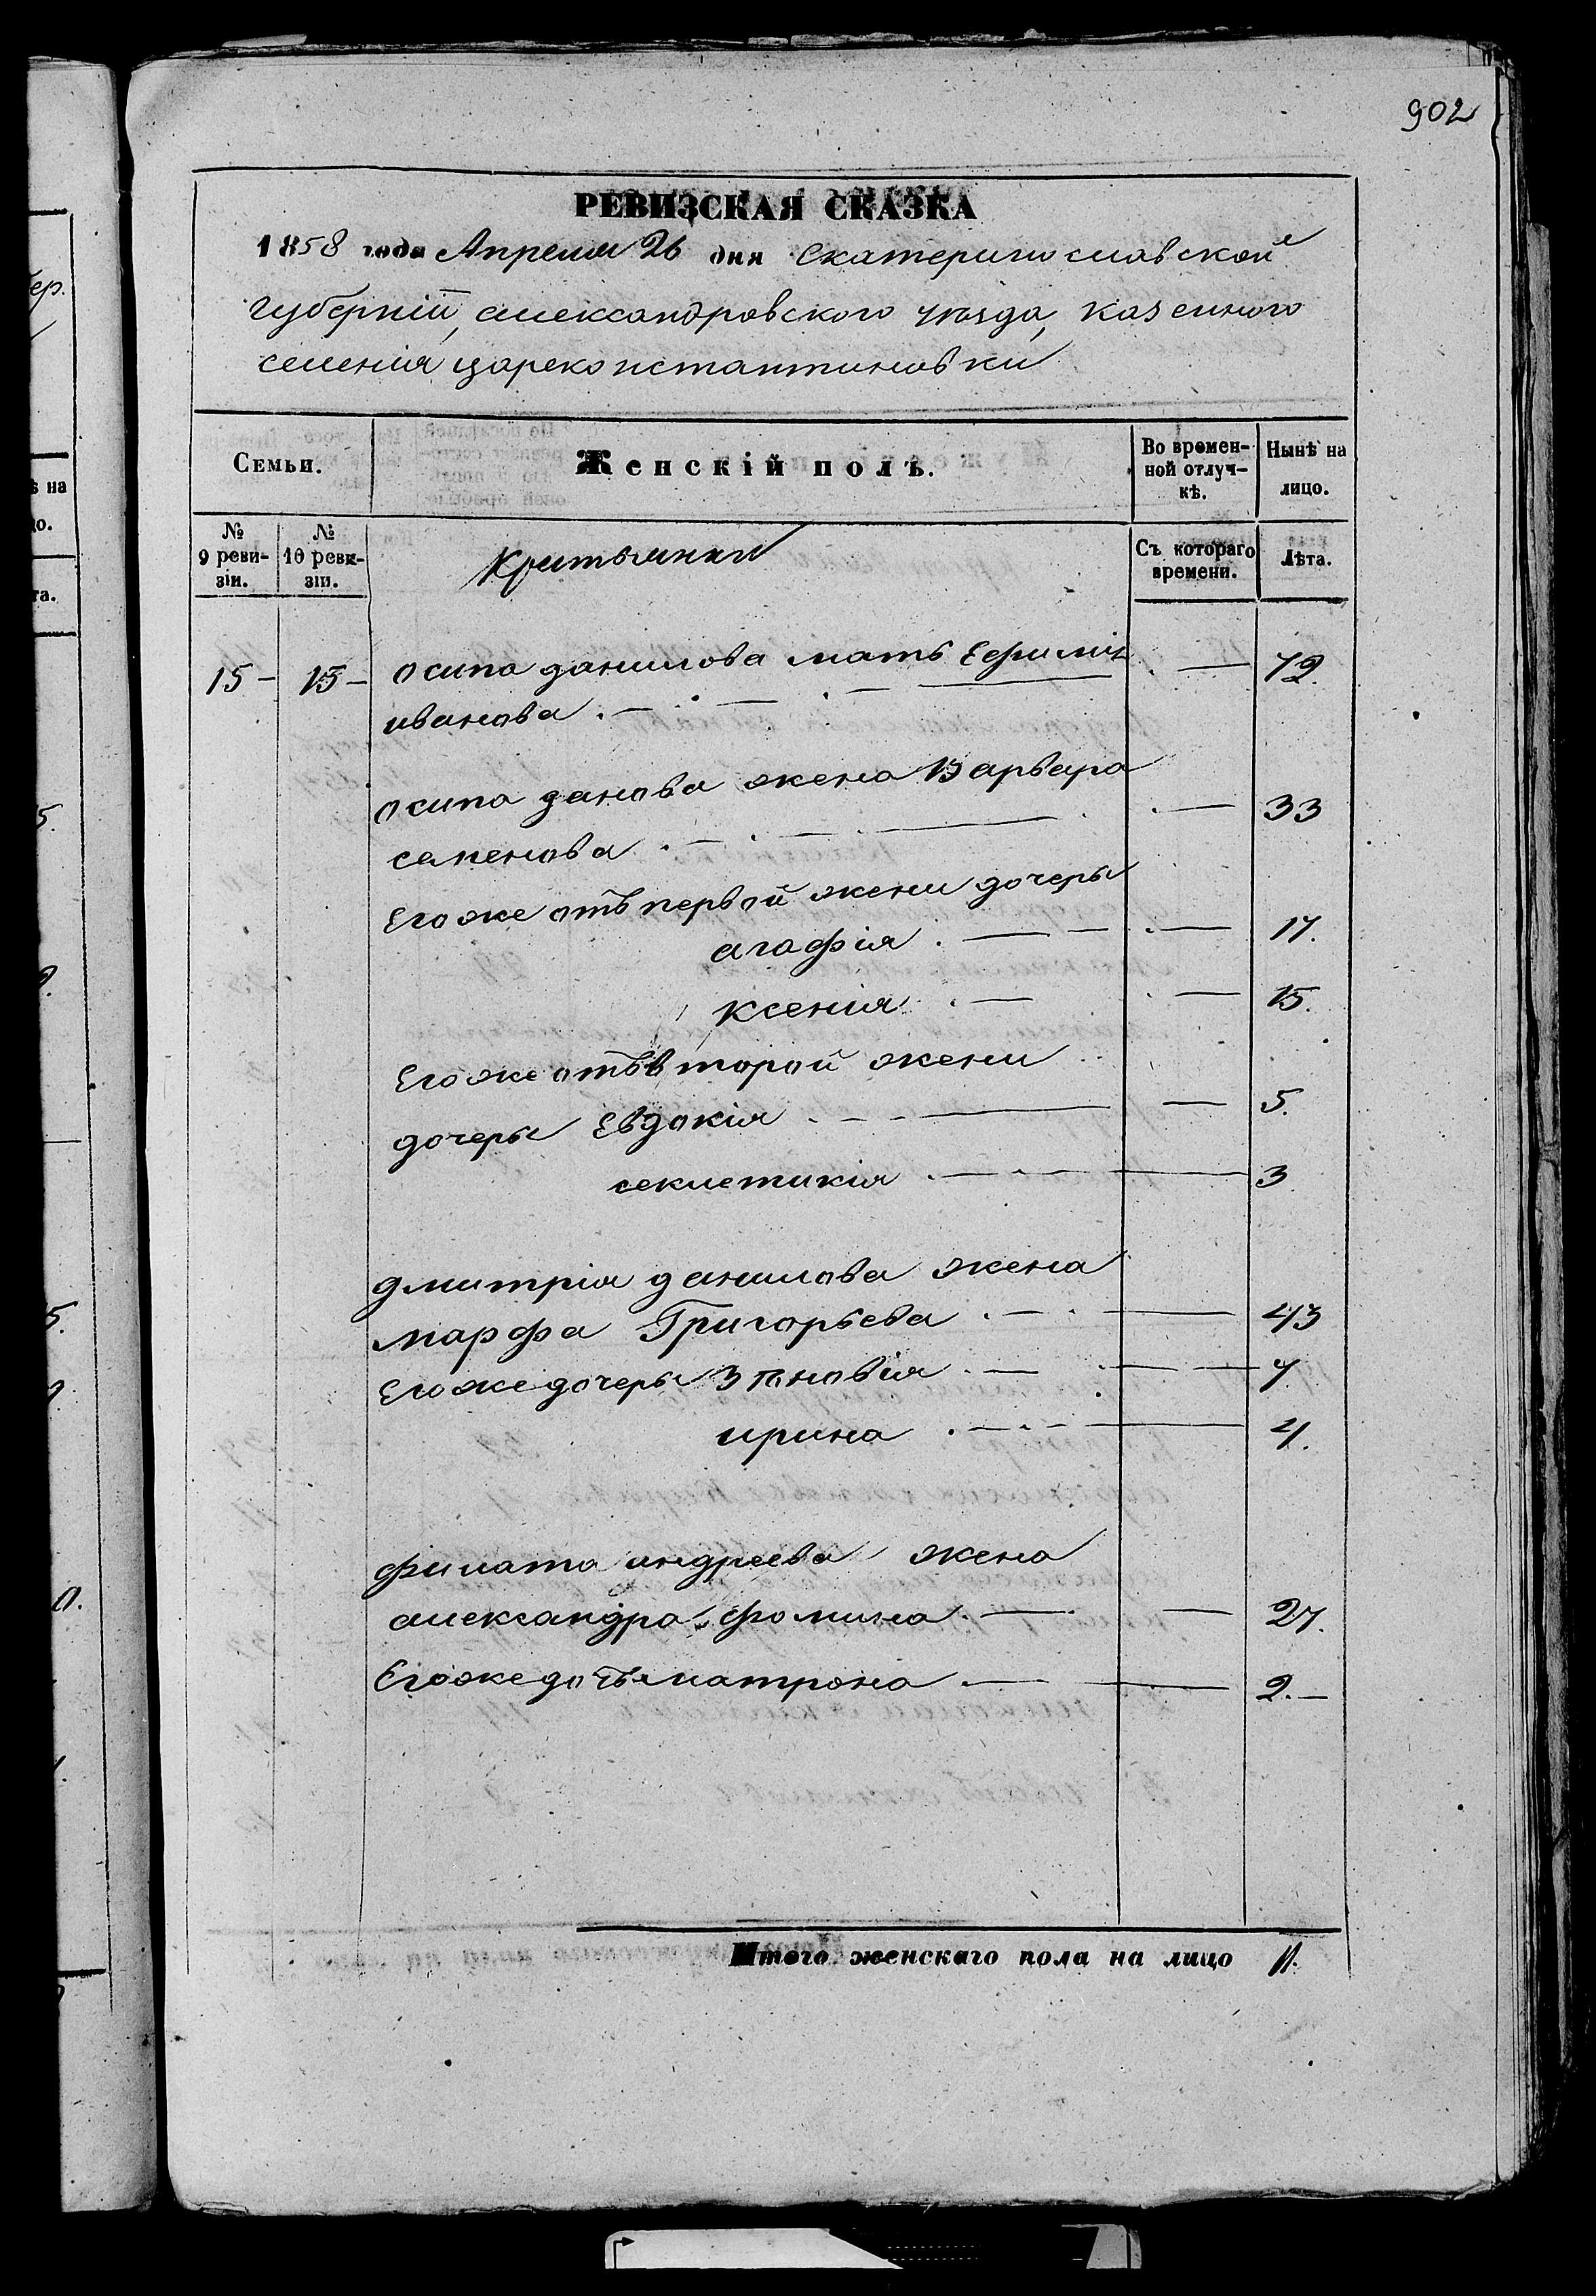 902
РЕВИЗСКАЯ СКАЗКА
1858 года Апреля 26 дня Екатеринославской
губерніи, александровского уѣзда, казенного
селенія цареконстантиновки
Семьи.
Женскій полъ.
Во времен-
ной отлуч-
кѣ.
Нынѣ на
лицо.
№
9 реви-
зіи.
№
10 реви-
зіи.
Съ котораго
времени.
Лѣта.
15 – 15 – осипа данилова мать Ефимія — 72.
иванова . —
осипа данова жена Варвара — 33
семенова . —
Его же отъ первой жени дочеры
агафія . — 17.
ксенія . — 15.
Его же отъ второй жени
дочеры Евдокія — 5.
секлетикія . — 3
дмитрія данилова жена
марфа Григорьева . — 43
Его же дочеры Зѣновія . — 7.
ирина . — 4.
филата андреева жена
александра фомина . — 27.
Его же дочъ матрона — 2. –
Итого женскаго пола на лицо 11.